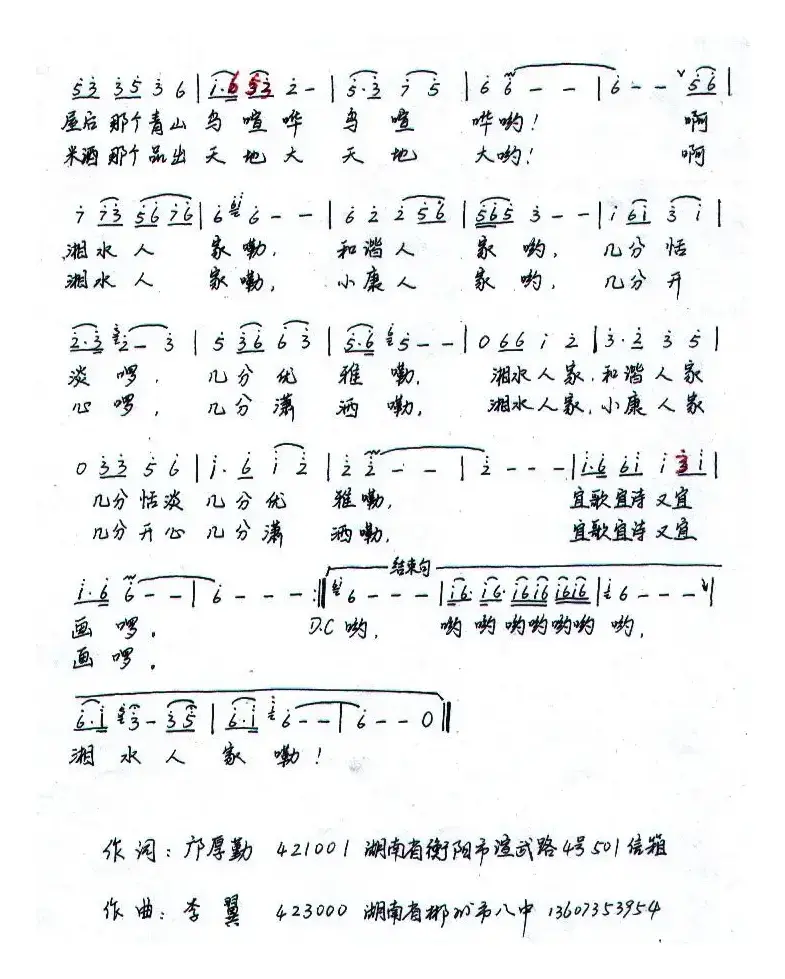 53 353 6 | i·6 53 2 - | 5·3 7 5 | 6 6 - - | 6 - - ∨ 56 |
屋后 那个青山 鸟 喧 哗 鸟 喧 哗哟! 啊
米酒 那个品出 天 地 大 天 地 大哟! 啊
7 73 56 76 | 6 6 - - | 6 2 2 56 | 565 3 - - | i 6i 3 i |
湘水人 家嘞, 和谐人 家 哟, 几分 恬
湘水人 家嘞, 小康人 家 哟, 几分 开
2·3 2 - 3 | 5 36 6 3 | 5·6 5 - - | 0 66 i 2 | 3·2 3 5 |
淡 啰, 几分优 雅嘞, 湘水人家,和谐人家
心 啰, 几分潇 洒嘞, 湘水人家,小康人家
0 33 5 6 | i·6 i 2 | 2 2 - - | 2 - - - | i·6 6i i 3i |
几分恬淡 几分优 雅嘞, 宜歌宜诗又宜
几分开心 几分潇 洒嘞, 宜歌宜诗又宜
结束句
i·6 6 - - | 6 - - - :‖ 6 - - - | i6· i6· i6i6 i6i6 | 6 - - - |
画啰。 D.C 哟, 哟哟哟哟哟哟 哟,
画啰。
6·i 3 - 35 | 6·i 6 - - | 6 - - 0 ‖
湘 水 人 家 嘞!
作词: 邝厚勤 421001 湖南省衡阳市蒸武路4号501信箱
作曲: 李 翼 423000 湖南省郴州市八中 13607353954